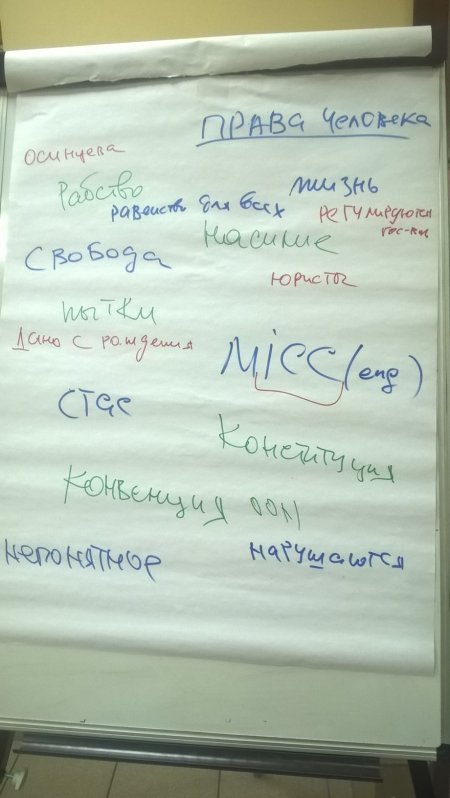 ПРАВА человека
Осинцева
Рабство
жизнь
равенство для всех
регулируются
гос-вом
насилие
СВОБОДА
юристы
пытки
Дано с рождения
МiСС (eng)
Конституция
Конвенция ООН
непонятное
нарушаются